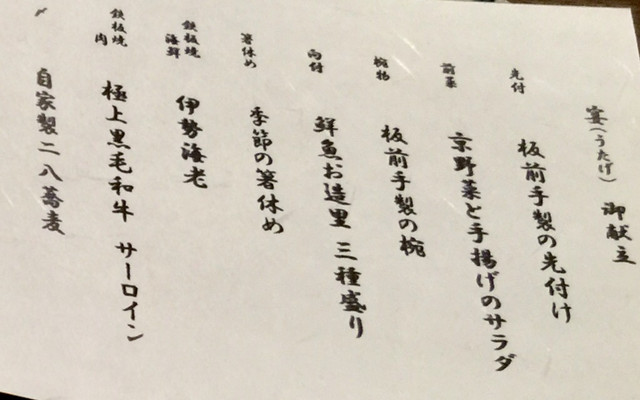 宴(うたげ) 御献立
先付 板前手製の先付け
前菜 京野菜と手揚げのサラダ
椀物 板前手製の椀
向付 鮮魚お造里 三種盛り
箸休め 季節の箸休め
鉄板焼 海鮮 伊勢海老
鉄板焼 肉 極上黒毛和牛 サーロイン
〃 自家製二八蕎麦